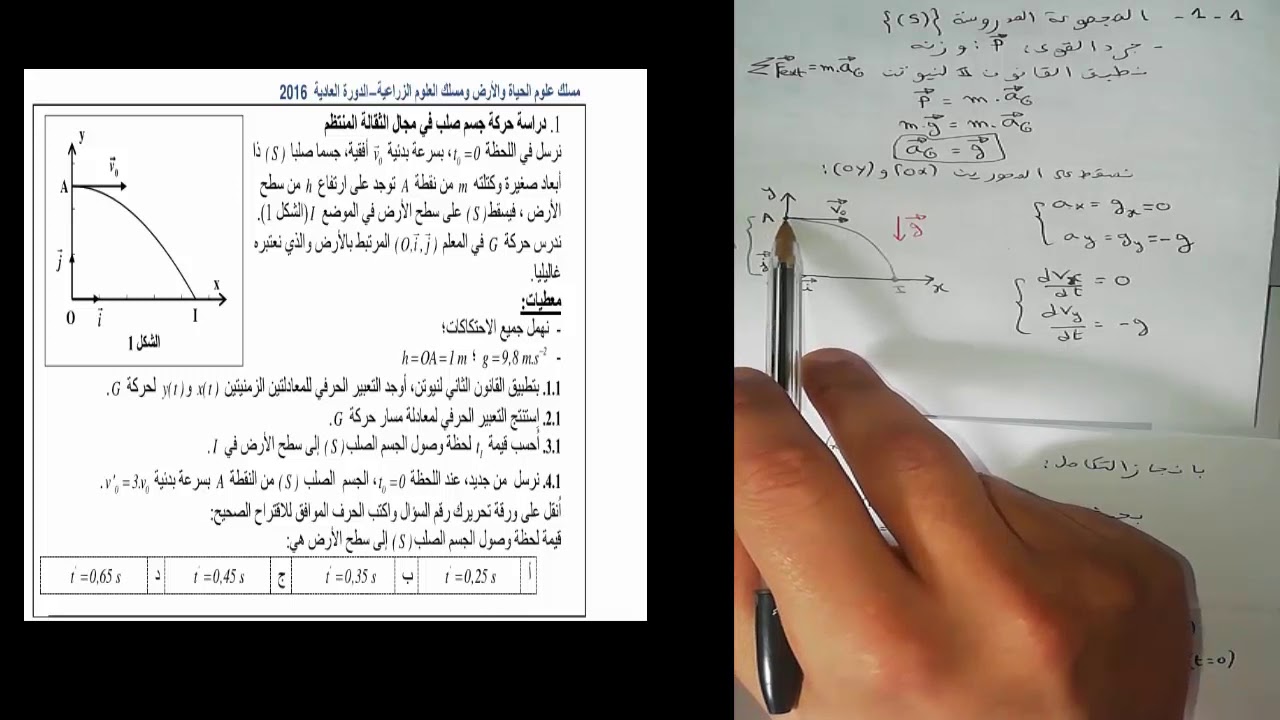 مسلك علوم الحياة والأرض ومسلك العلوم الزراعية–الدورة العادية 2016
1. دراسة حركة جسم صلب في مجال الثقالة المنتظم
نرسل في اللحظة t₀=0، بسرعة بدئية v⃗₀ أفقية، جسما صلبا (S) ذا
أبعاد صغيرة وكتلته m من نقطة A توجد على ارتفاع h من سطح
الأرض ، فيسقط (S) على سطح الأرض في الموضع I (الشكل 1).
ندرس حركة G في المعلم (O,i⃗,j⃗) المرتبط بالأرض والذي نعتبره
غاليليا.
معطيات:
- نهمل جميع الاحتكاكات؛
- h=OA=1m ؛ g=9,8 m.s⁻²
1.1. بتطبيق القانون الثاني لنيوتن، أوجد التعبير الحرفي للمعادلتين الزمنيتين x(t) و y(t) لحركة G.
2.1. إستنتج التعبير الحرفي لمعادلة مسار حركة G.
3.1. أحسب قيمة t₁ لحظة وصول الجسم الصلب (S) إلى سطح الأرض في I.
4.1. نرسل من جديد، عند اللحظة t₀=0، الجسم الصلب (S) من النقطة A بسرعة بدئية v'₀=3.v₀.
أنقل على ورقة تحريرك رقم السؤال واكتب الحرف الموافق للاقتراح الصحيح:
قيمة لحظة وصول الجسم الصلب (S) إلى سطح الأرض هي:
أ t'=0,25 s ب t'=0,35 s ج t'=0,45 s د t'=0,65 s
y
v⃗₀
A
j⃗
x
O i⃗ I
الشكل 1
1-1- المجموعة المدروسة {(S)}
- جرد القوى: P⃗: وزنه
نطبق القانون II لنيوتن ΣF⃗ext = m.a⃗G
P⃗ = m.a⃗G
m.g⃗ = m.a⃗G
a⃗G = g⃗
نسقط على المحورين (ox) و (oy):
y
A v⃗₀ g⃗
j⃗
i⃗ I x
ax = gx = 0
ay = gy = -g
dVx/dt = 0
dVy/dt = -g
بانجاز التكامل:
(t=0)